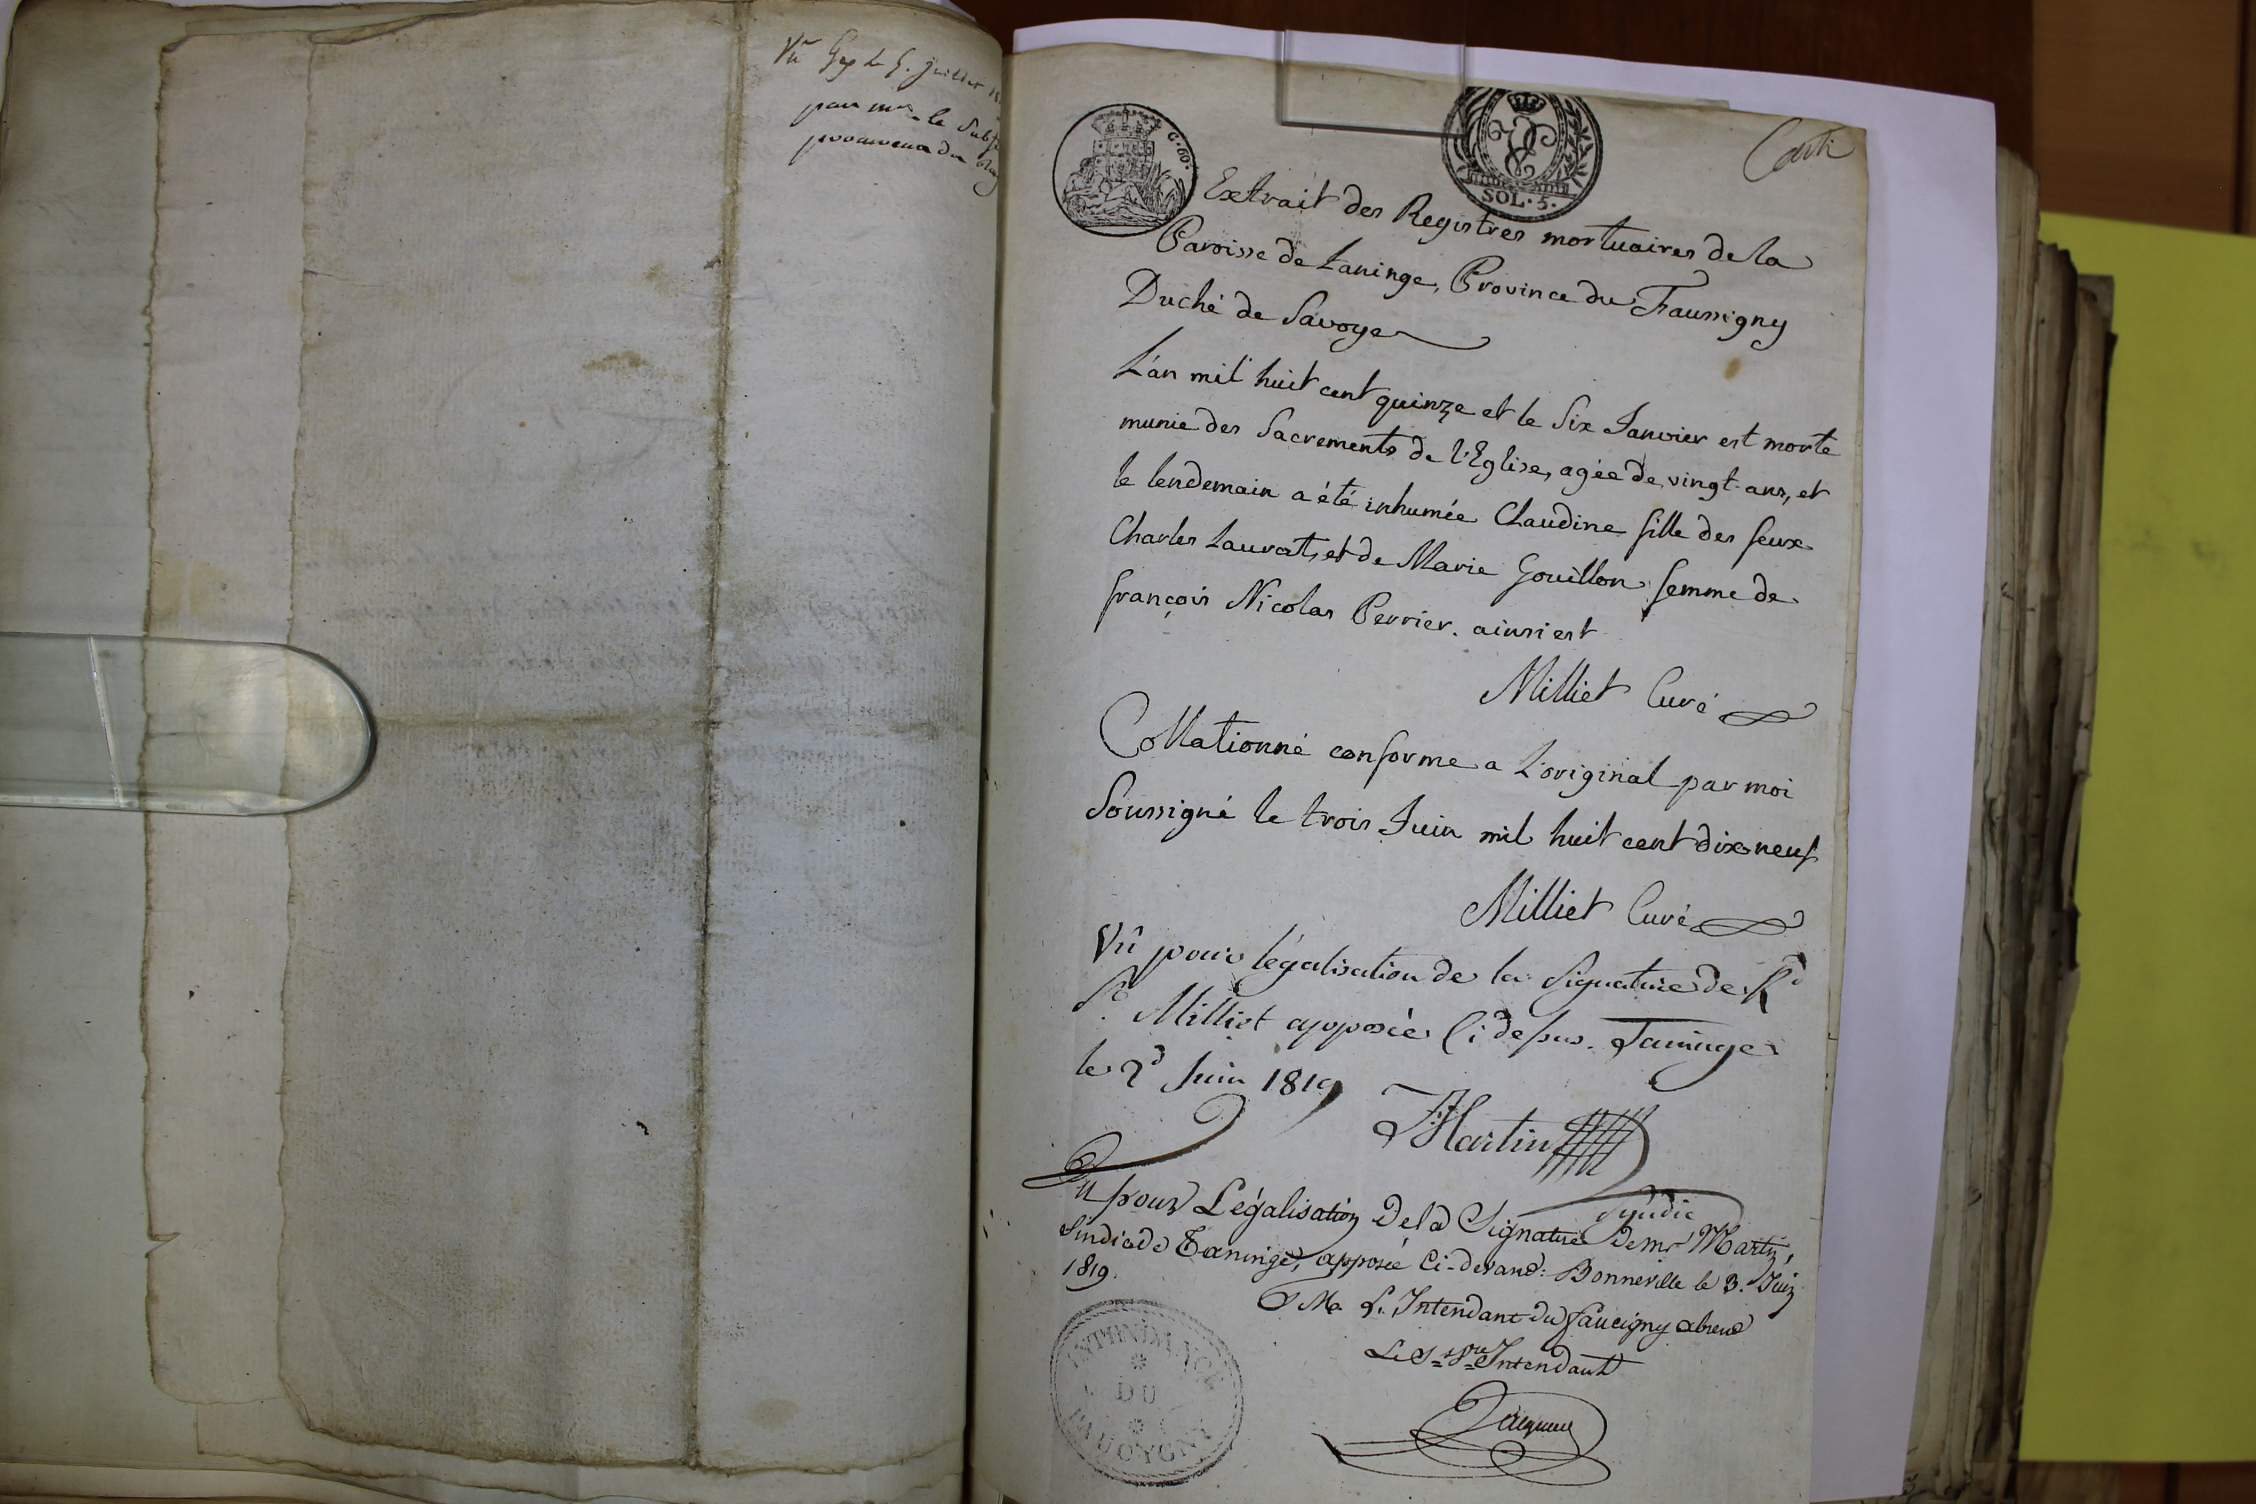 Vû Gex le 5. juillet
par mr. le Subst
procureur du Roy
C. 60.
SOL. 5.
Extrait des Registres mortuaires de la
Paroisse de Taninge, Province du Faussigny
Duché de Savoye
L'an mil huit cent quinze et le Six Janvier est morte
munie des Sacrements de l'Eglise, agée de vingt-ans, et
le lendemain a été inhumée Claudine fille des feux
Charles Laurat, et de Marie Gouillon femme de
françois Nicolas Perrier. ainsi est
Milliet Curé
Collationné conforme a L'original par moi
Soussigné le trois Juin mil huit cent dix neuf
Milliet Curé
Vû pour légalisation de la Signature de Rd
Sr. Milliet apposée Ci dessus. Taninge
le 3 Juin 1819
Martin
Syndic
Vu pour Légalisation De la Signature De mr Martin,
Sindic de Taninge, apposée Ci-devant: Bonneville le 3. Juin
1819.
Mr L'Intendant du faucigny absent
Le Intendant
INTENDANCE
DU
FAUCYGNY